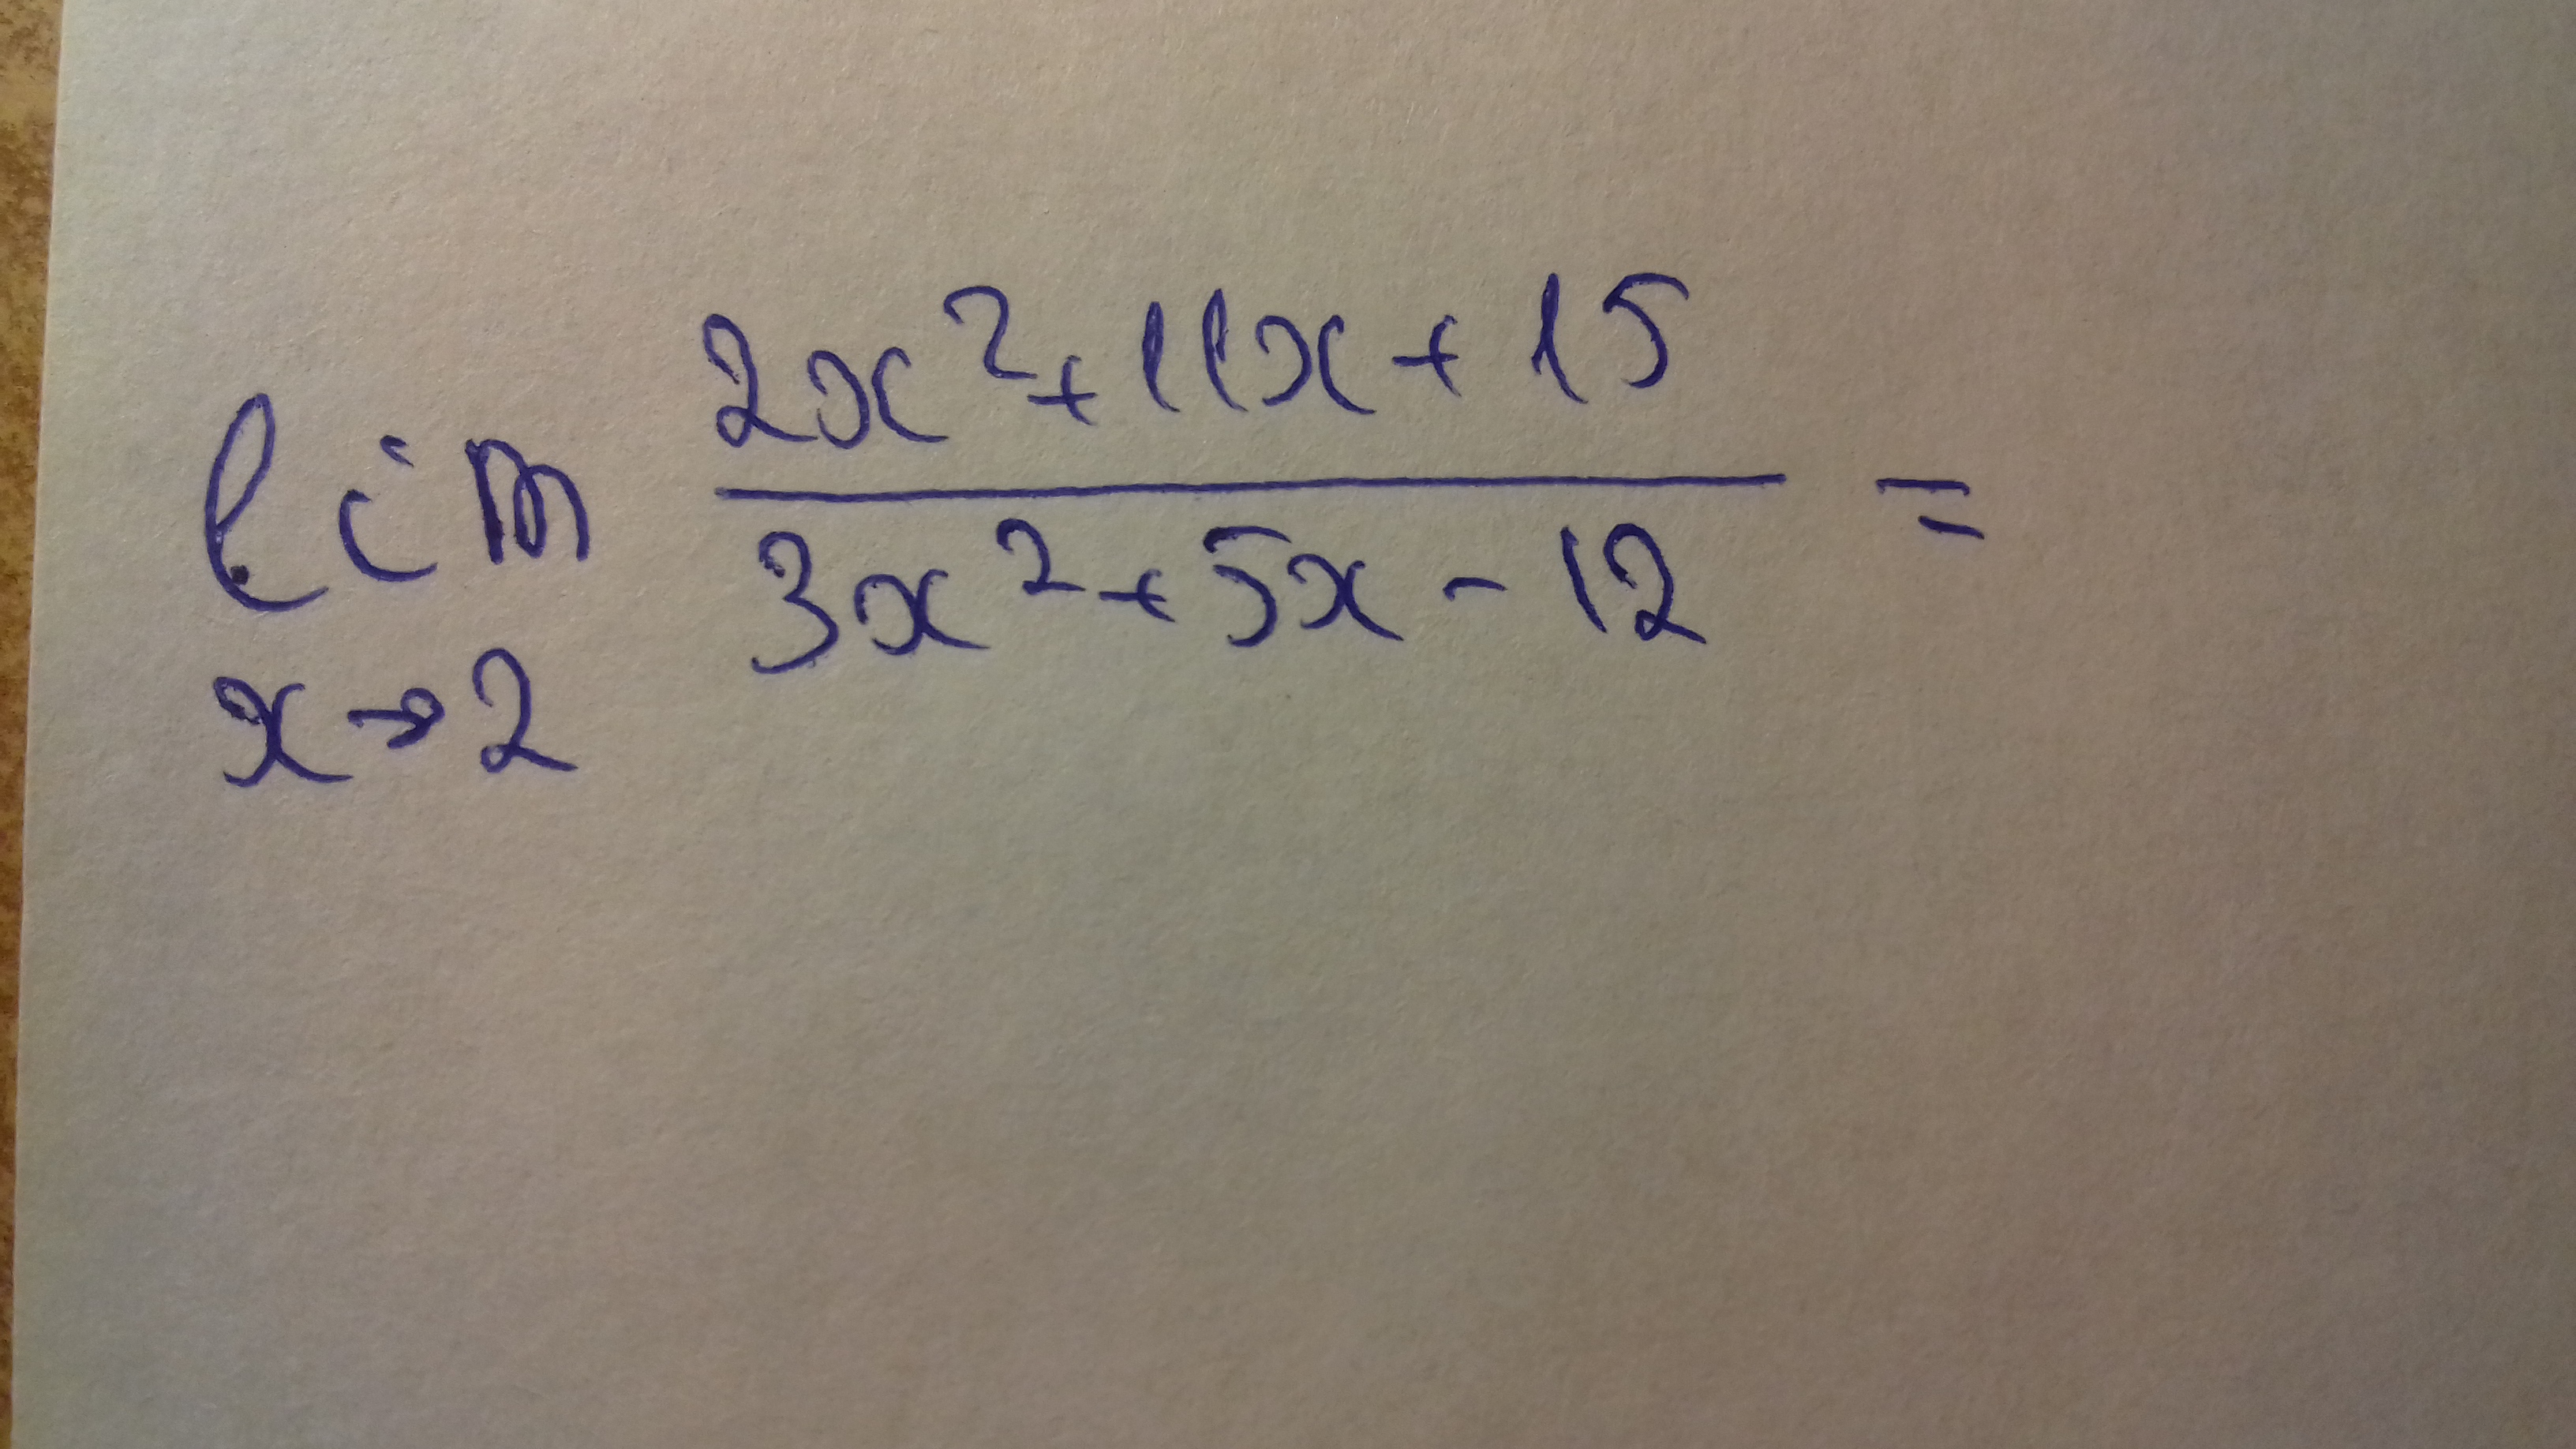 lim 2x²+11x+15 / 3x²+5x-12 =
x→2